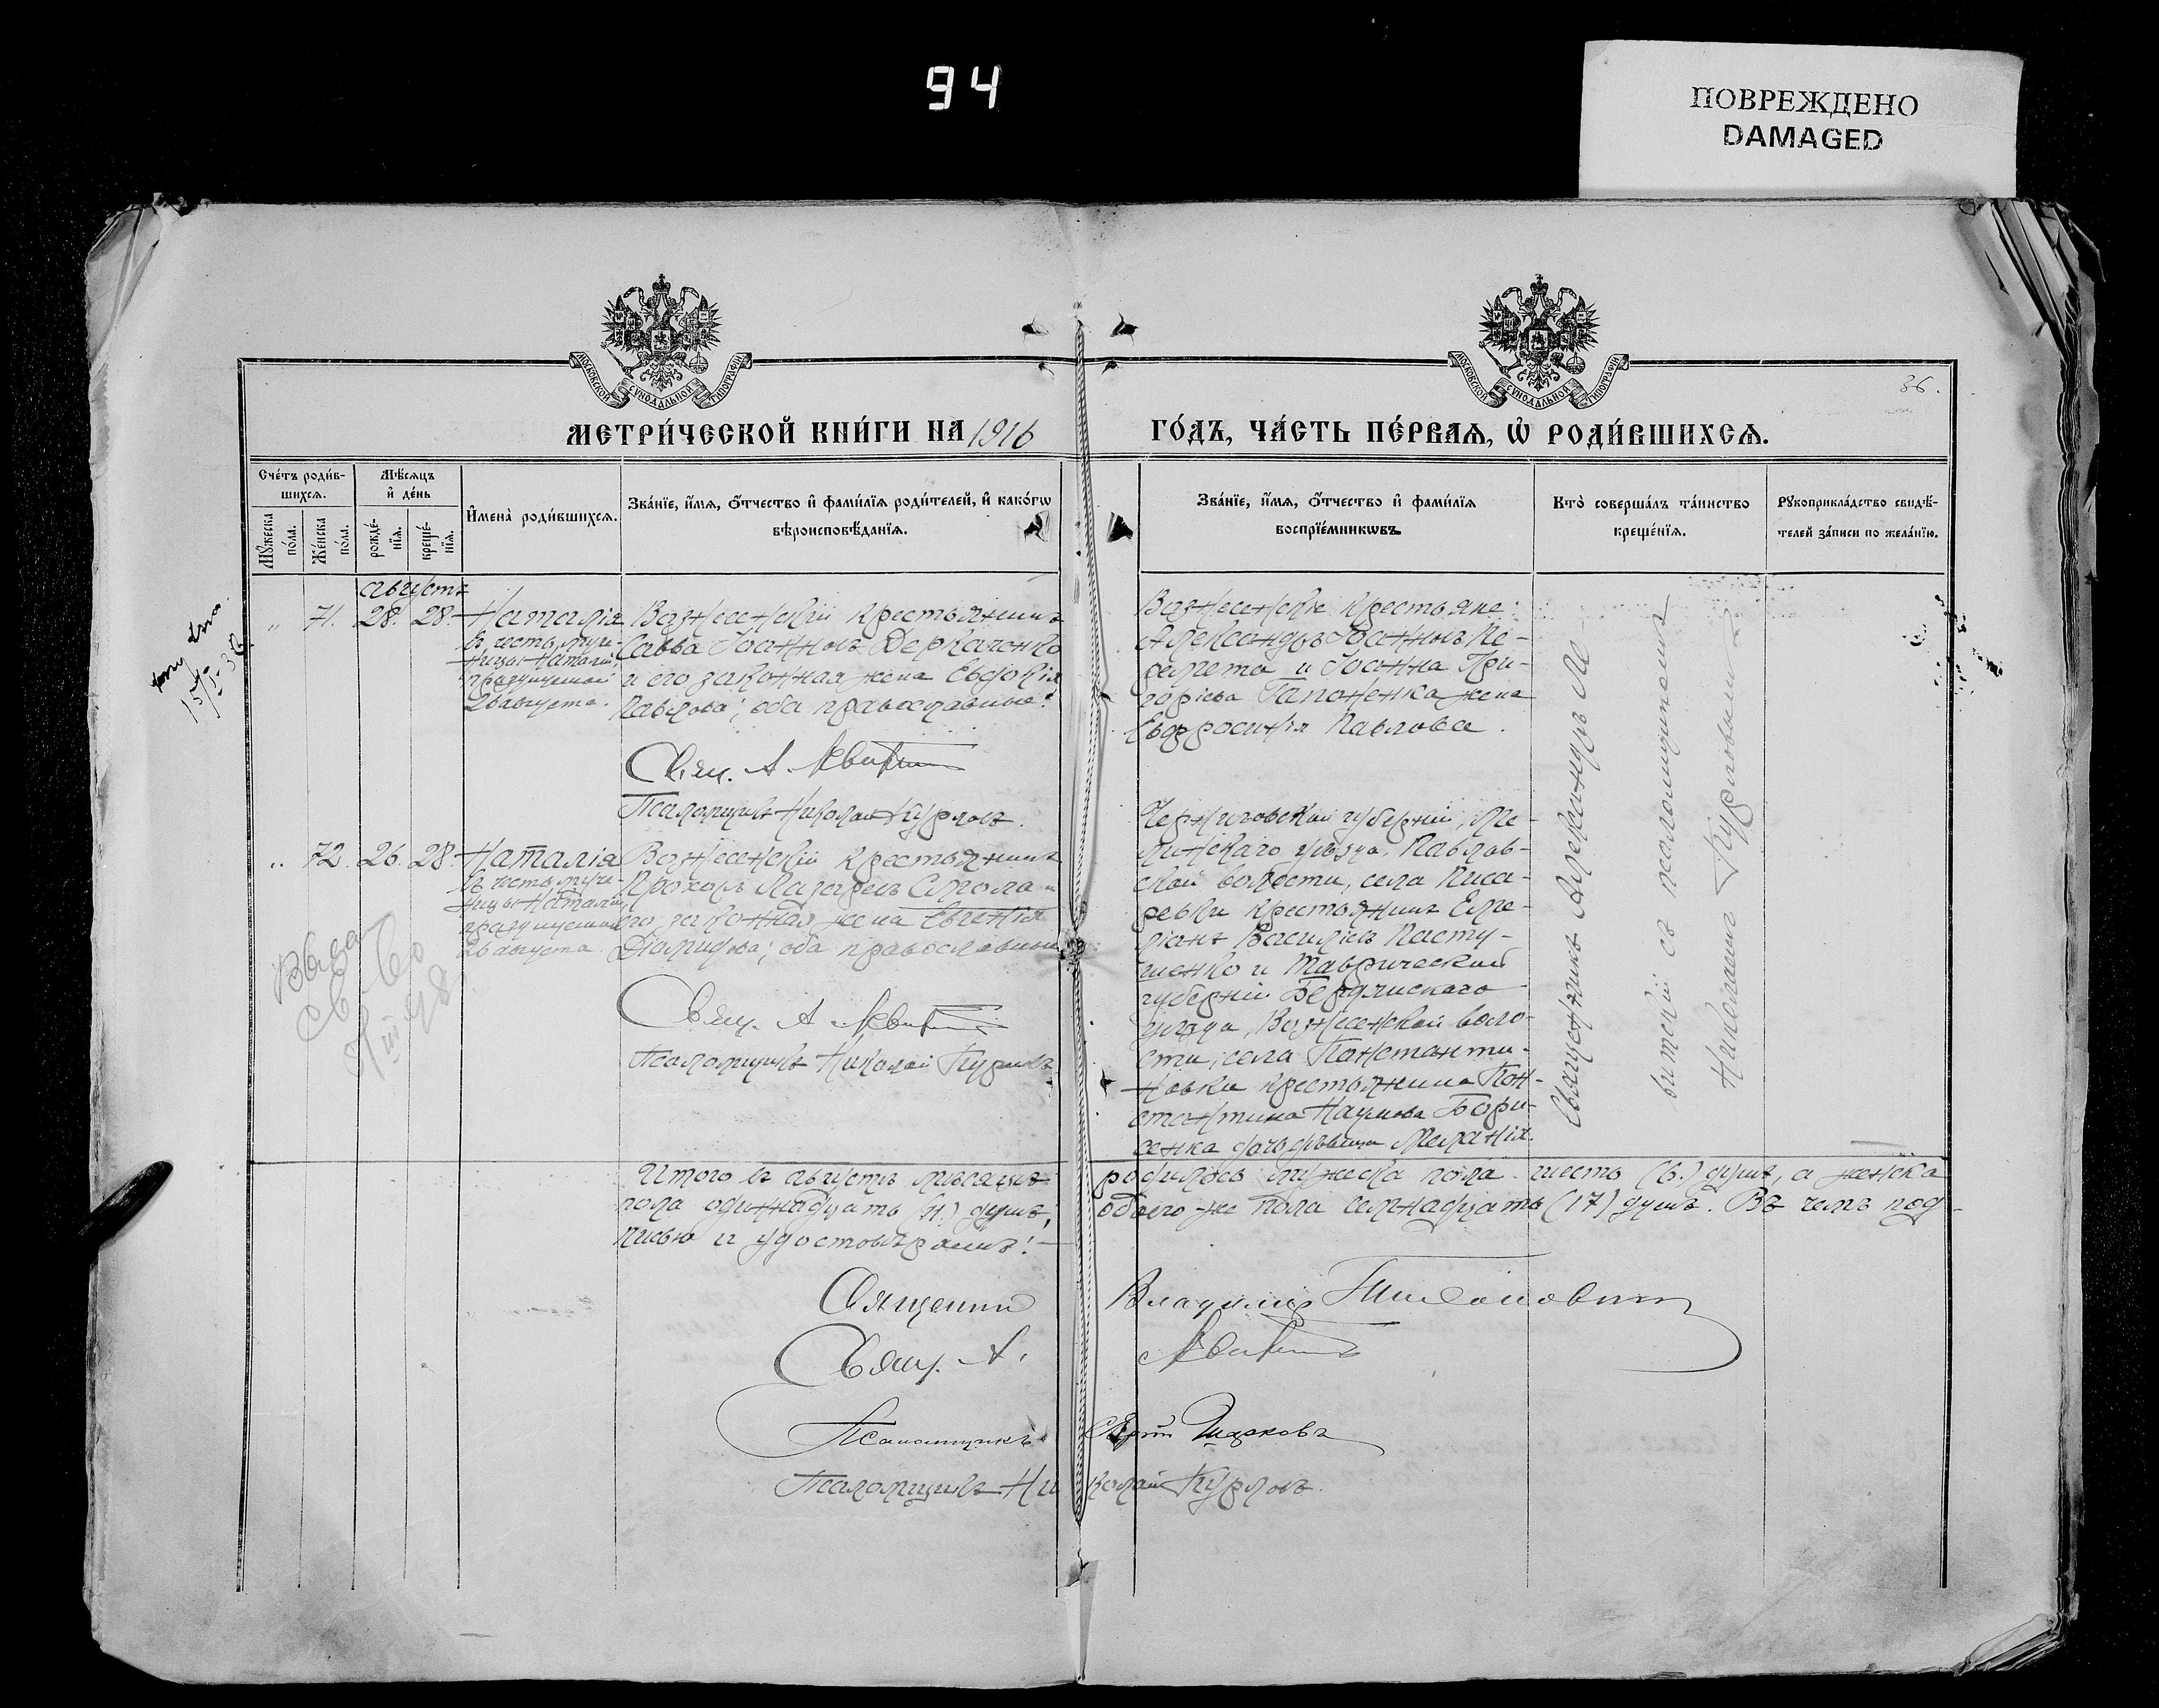 94
ПОВРЕЖДЕНО
DAMAGED
МОСКОВСКОЙ СѴНОДАЛЬНОЙ ТИПОГРАФІИ
МОСКОВСКОЙ СѴНОДАЛЬНОЙ ТИПОГРАФІИ
36.
МЕТРИ́ЧЕСКОЙ КНИ́ГИ НА 1916 ГО́ДЪ, ЧА́СТЬ ПЕ́РВАЯ, Ѽ РОДИ́ВШИХСЯ.
Сче́тъ роди́в-
шихся.
Мѣ́сяцъ
и҆ де́нь
Мꙋ́жеска
по́ла.
Же́нска
по́ла.
рожде́-
нїя.
креще́-
нїя.
И҆мена̀ роди́вшихся.
Зва́нїе, и҆́мя, ѻ҆́тчество и҆ фами́лїя роди́телей, и҆ како́гѡ
вѣроисповѣ́данїя.
Зва́нїе, и҆́мя, ѻ҆́тчество и҆ фами́лїя
воспрїе́мникѡвъ.
Кто̀ соверша́лъ та́инство
креще́нїя.
Рꙋкоприкла́дство свидѣ́-
телей за́писи по жела́нїю.
Августъ
„ 71. 28. 28. Наталія
въ честь муче-
ницы Наталіи,
празднуемой
26 августа.
Вознесенскій крестьянинъ
Савва Іоанновъ Деркаченко
и его законная жена Евдокія
Павлова; оба православные.
Свящ. А.
Псаломщикъ Николай Курловъ.
Вознесенскіе крестьяне:
Александръ Іоанновъ Пе-
репета и Іоанна Гри-
горіева Гапоненка жена
Евфросинія Павлова.
„ 72. 26. 28. Наталія
въ честь муче-
ницы Наталіи,
празднуемой
26 августа.
Вознесенскій крестьянинъ
Прохоръ Лазаревъ Смола и
его законная жена Евгенія
Діомидова; оба православные
Свящ. А.
Псаломщикъ Николай Курловъ
Черниговской губерніи,
уѣзда, Павлов-
ской волости, села Писа-
ревки крестьянинъ Еме-
ліанъ Василіевъ Пасту-
шенко и Таврической
губерніи Бердянскаго
уѣзда, Вознесенской воло-
сти, села Константи-
новки крестьянина Кон-
стантина Наумова Бори-
сенка дочь дѣвица Меланія.
Священникъ Александръ Ле
витскій съ псаломщикомъ
Николаемъ Курловымъ
Итого въ августѣ мѣсяцѣ родилось мужеска пола шесть (6.) душъ, а женска
пола одиннадцать (11.) душъ, обоего-же пола семнадцать (17) душъ. Въ чемъ под-
писью и удостовѣряемъ:
Священник Владимір
Свящ. А.
Псаломщикъ Шарковъ
Псаломщикъ Николай Курловъ.